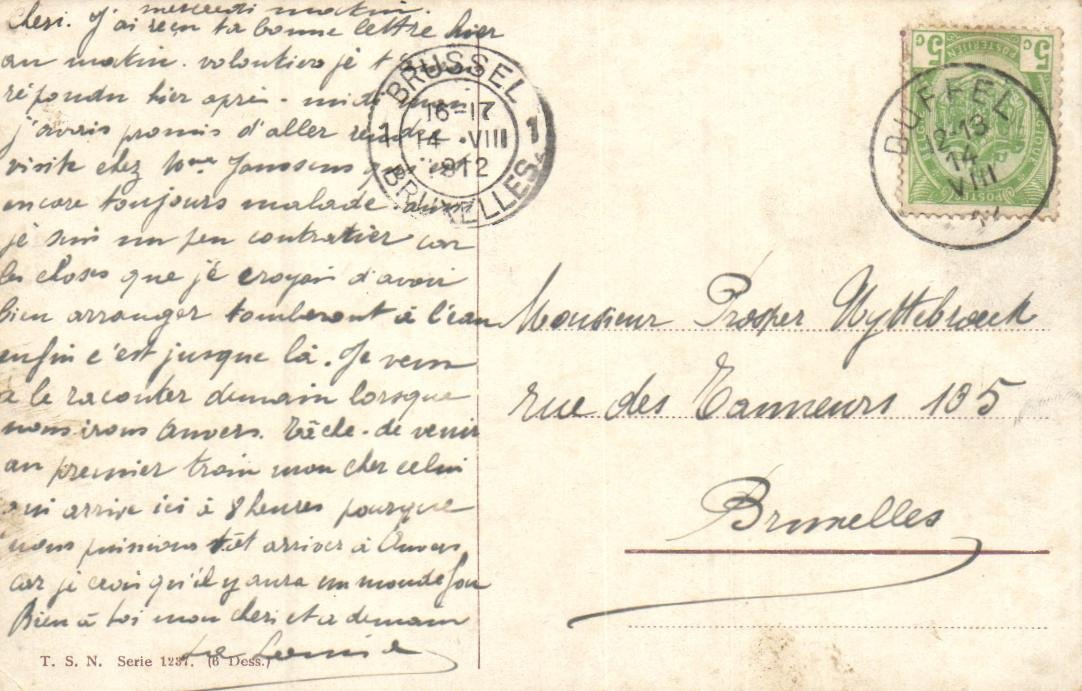 mercredi matin.
Cheri. J'ai reçu ta bonne lettre hier
au matin. volontiers je t'
répondu hier après-midi
j'avais promis d'aller rendre
visite chez Mme Janssens
encore toujours malade
je suis un peu contrarier car
les choses que je croyais d'avoir
bien arranger tomberont à l'eau
enfin c'est jusque là. Je
à le raconter demain lorsque
nous irons Anvers. Tâche de venir
au premier train mon cher celui
qui arrive ici à 8 heures pourque
nous puissions tôt arriver à Anvers
car je crois qu'il y aura un monde fou
Bien à toi mon cheri et a demain
T. S. N. Serie 1237. (6 Dess.)
BRUSSEL
16-17
1 14 VIII 1
1912
BRUXELLES
5 c 5 c
POSTERIJEN
POSTES
DUFFEL
12-13
14
VIII
Monsieur Prosper Uyttebroeck
rue des Tanneurs 135
Bruxelles